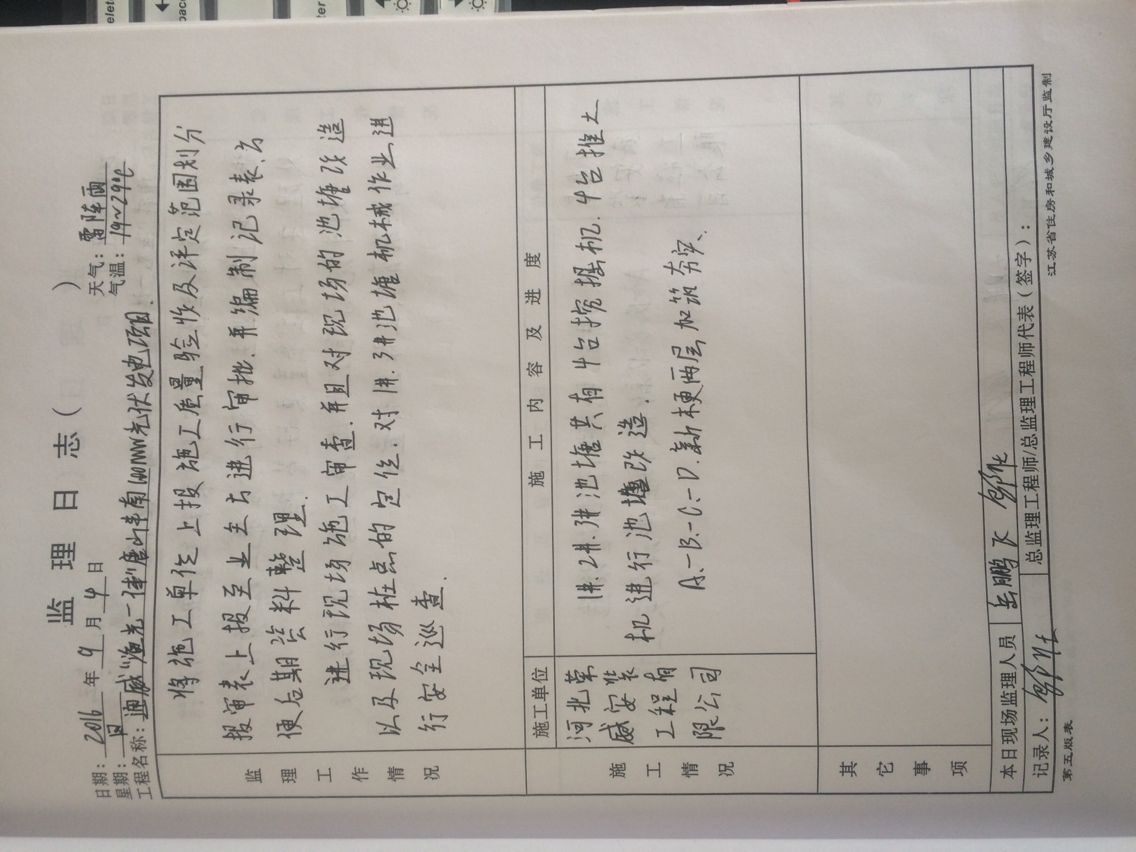 监理日志( )
日期: 2016年9月4日 天气: 雷阵雨
星期: 日 气温: 19~29℃
工程名称: 通威"渔光一体"唐山丰南 光伏发电项目
监理工作情况
将施工单位上报施工质量验收及评定范围划分
报审表上报至业主方进行审批.并编制记录表.方
便后期资料整理.
进行现场施工审查.并且对现场的池塘改造
以及现场桩点的定位.对1#.3#池塘机械作业进
行安全巡查.
施工情况
施工单位 施工内容及进度
河北荣
威安装
工程有
限公司
1#.2#.3#池塘共有4台挖掘机.4台推土
机进行池塘改造.
A.-B.-C.-D.新埂两层加筑夯实、
其它事项
本日现场监理人员 岳鹏飞
记录人: 总监理工程师/总监理工程师代表(签字):
第五版表 江苏省住房和城乡建设厅监制